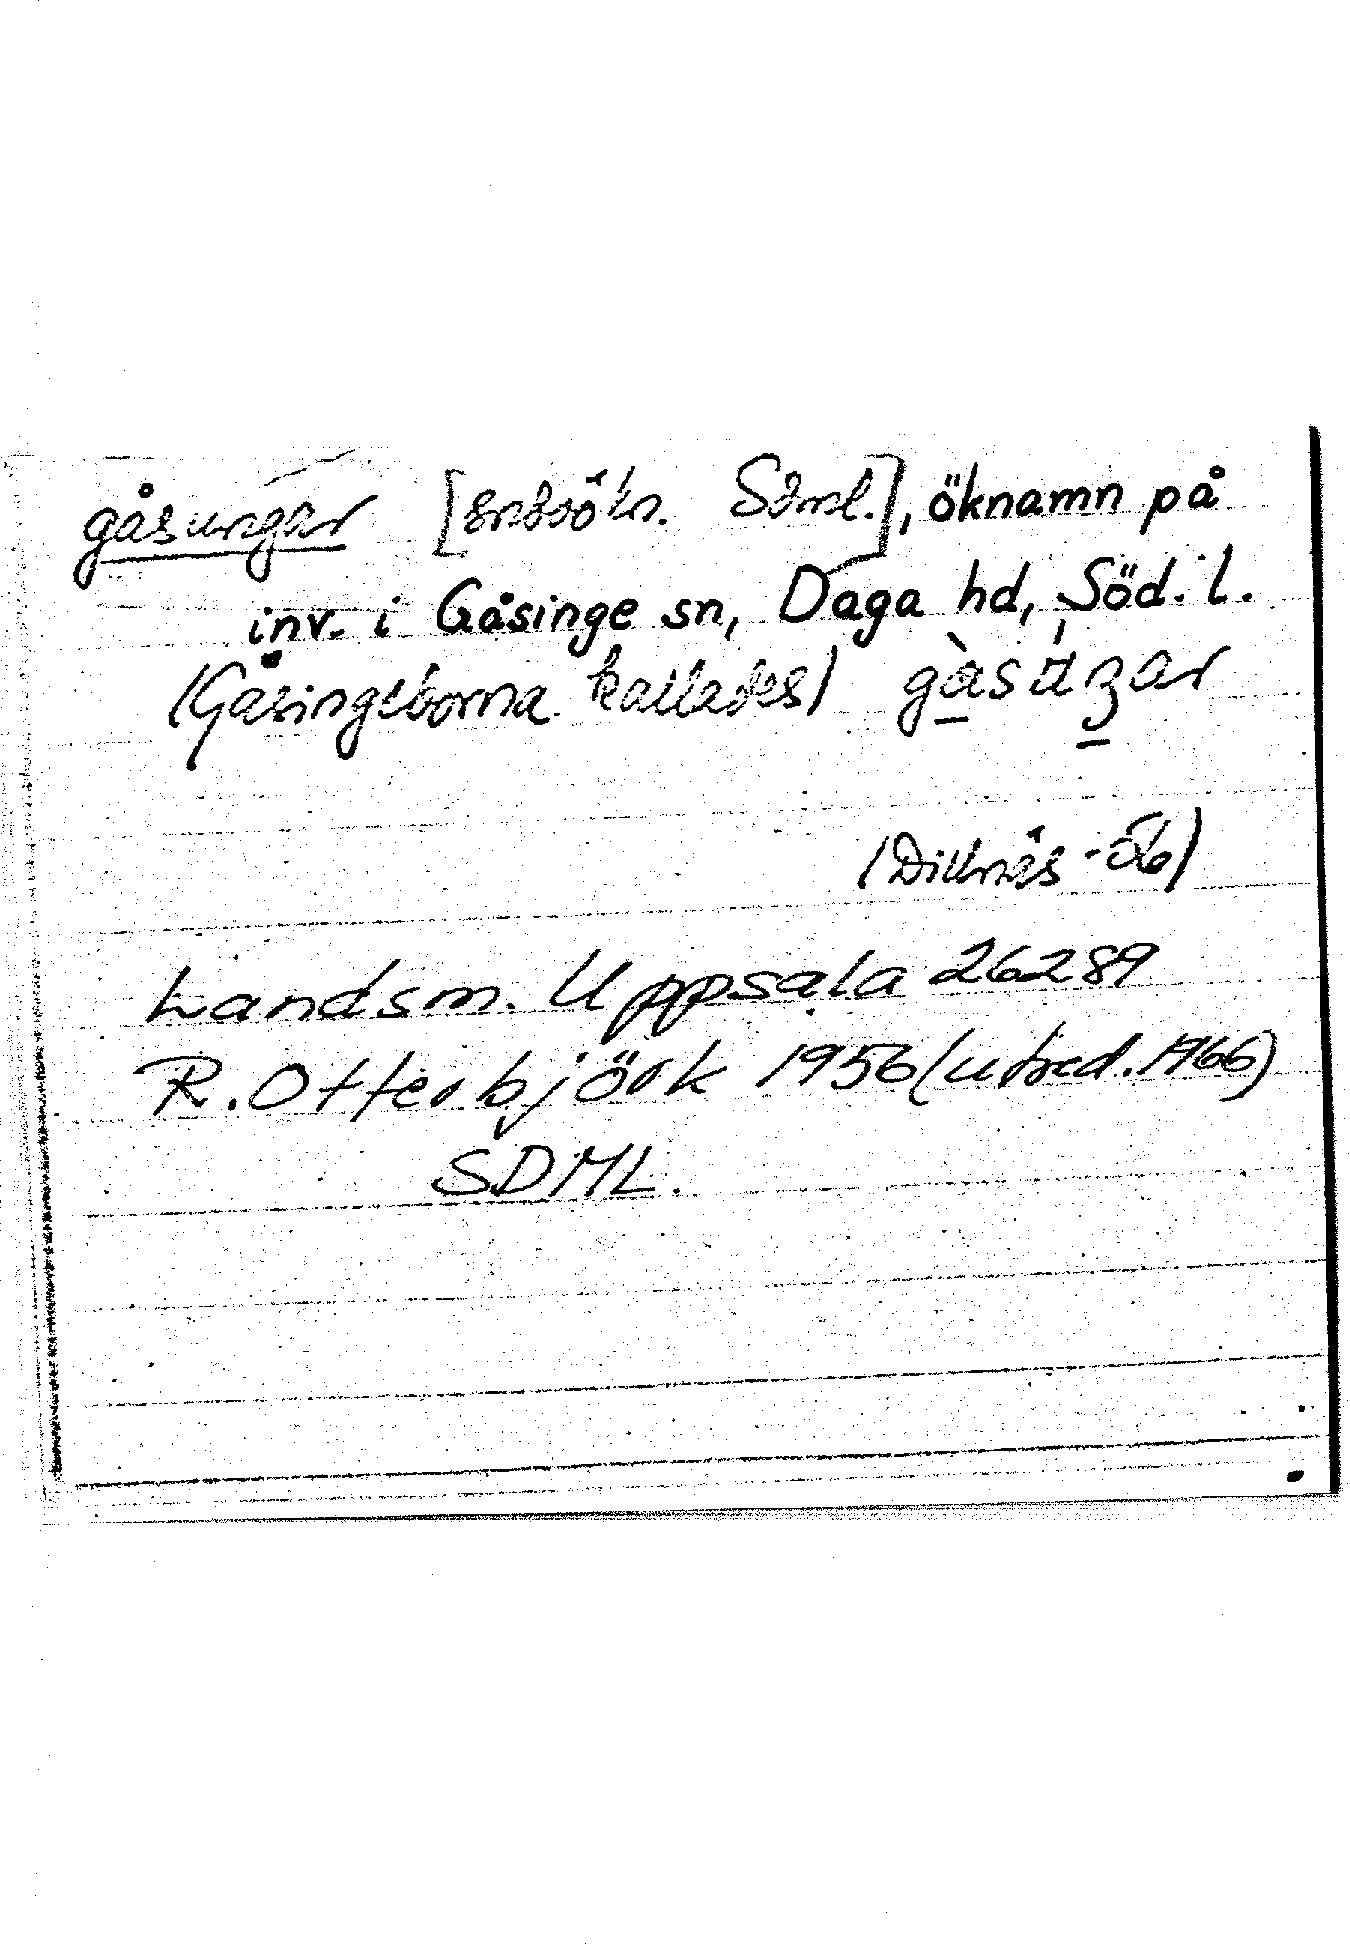 gåsungar [snsökn. Sdml.], öknamn på
inv. i Gåsinge sn, Daga hd, Söd. l.
(Gåsingeborna kallades)
(Dillnäs -56)
Landsm. Uppsala 26289
R. Otterbjörk 1956 (utred. 1966)
SDML.